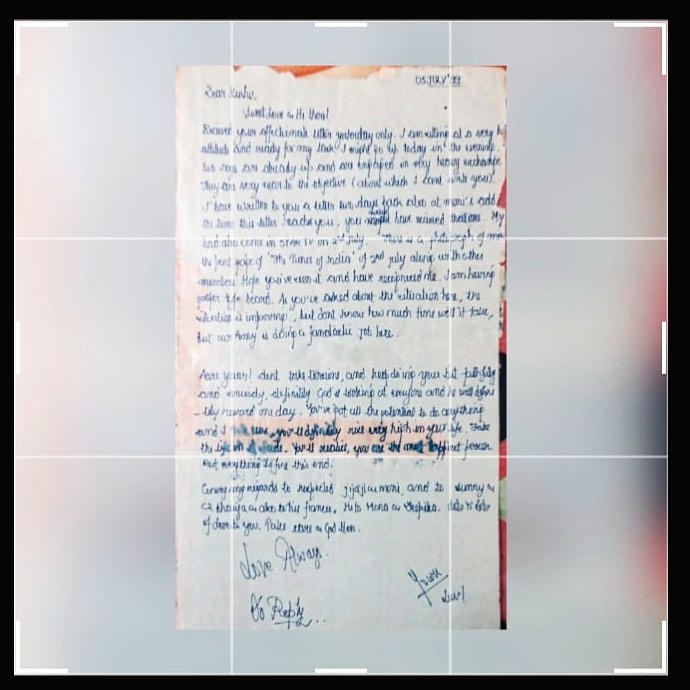 05 JULY '99
Dear
Sweet Love n Hi there!
Received your affectionate letter yesterday only. I am sitting at a very h
altitude and ready for my task. I might go up today in the evening.
boys are already up and are engaged in very heavy exchange.
They are very near to the objective (about which I cant write you).
I have written to you a letter two days back also at moni's add
the time this letter reach you, you have received that one. My
had also come in STAR TV on 2nd July. There is a photograph of mine
in front page of "The Times of India" of 2nd July along with other
members. Hope you've seen it and have recognised me. I am having
proper life beard. As you've asked about the situation here, the
situation is improving, but dont know how much time will it take,
but our Army is doing a fantastic job here.
dont take tensions, and keep doing your bit faithfully
and sincerely, definitely God is looking at everyone and he will define
-tely reward one day. You've got all the potential to do anything
and I sure, you'll definitely rise very high in your life. Take
the life You'll realise, you are the most person
Rest everything is fine this end.
Convey my regards to respected Jijaji n moni, and to Sunny n
also to his fiancee. Hi to Mona n Deepika.
of love to you. Take care n God bless.
Love Always.
Yours
Do Reply..